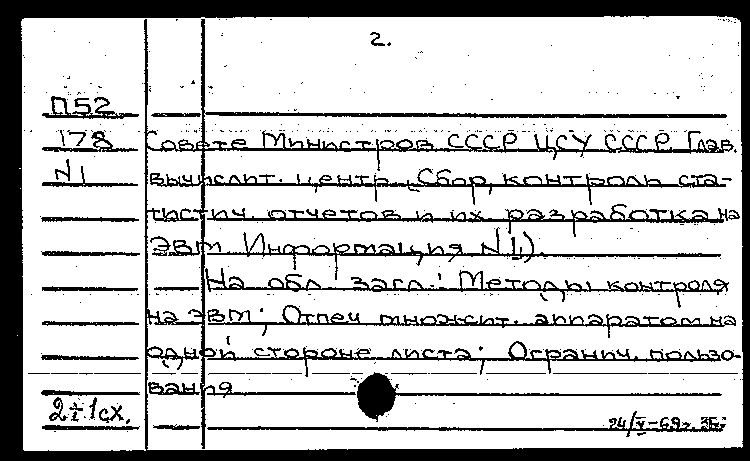 2.
П52
178 Совете Министров СССР ЦСУ СССР. Глав.
N1 вычислит. центр. Сбор, контроль ста-
тистич. отчетов и их разработка на
ЭВМ. Информация N1).
На обл. загл.: Методы контроля
на ЭВМ; Отпеч множит. аппаратом на
одной стороне листа; Огранич. пользо-
вания
2+1сх.
24/V-69г.